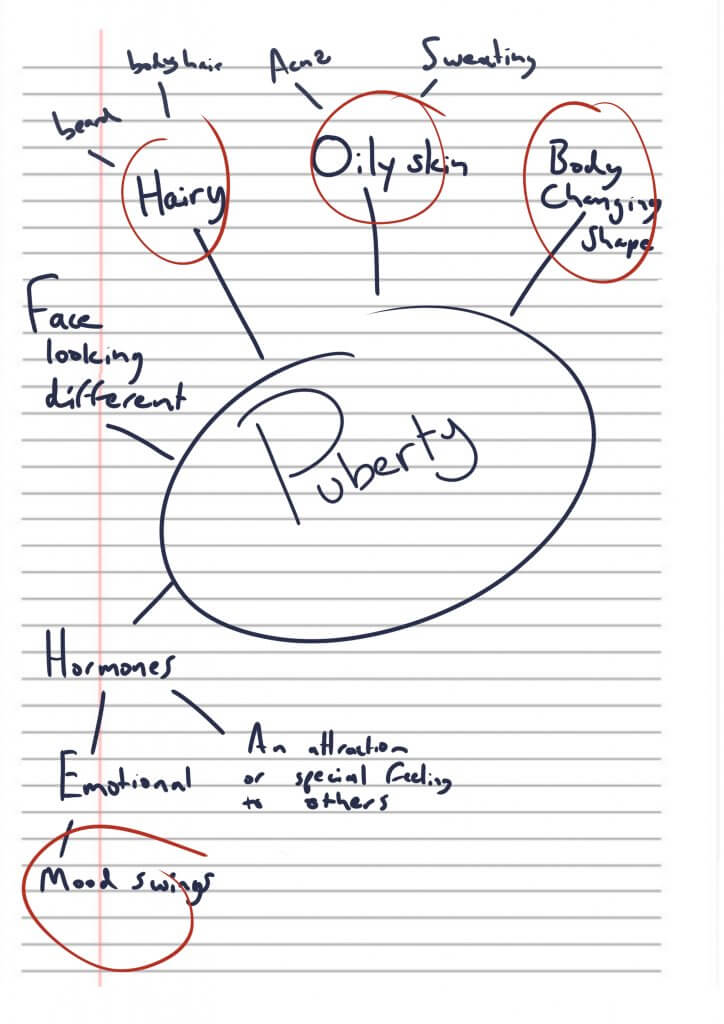 body hair
Acne
Sweating
beard
Hairy
Oily skin
Body
Changing
Shape
Face
looking
different
Puberty
Hormones
An attraction
or special feeling
to others
Emotional
Mood swings